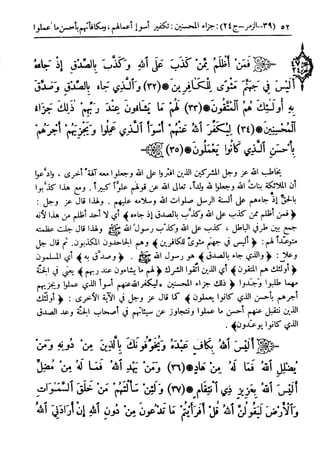 ٥٢ (٣٩-الزمر-ج٢٤): جزاء المحسنين: تكفير أسوإ أعمالهم، ومكافآتهم بأحسن ما عملوا
فَمَنْ أَظْلَمُ مِمَّنْ كَذَبَ عَلَى اللهِ وَكَذَّبَ بِالصِّدْقِ إِذْ جَاءَهُ
أَلَيْسَ فِي جَهَنَّمَ مَثْوًى لِلْكَافِرِينَ (٣٢) وَالَّذِي جَاءَ بِالصِّدْقِ وَصَدَّقَ
بِهِ أُولَٰئِكَ هُمُ الْمُتَّقُونَ (٣٣) لَهُمْ مَا يَشَاءُونَ عِنْدَ رَبِّهِمْ ذَٰلِكَ جَزَاءُ
الْمُحْسِنِينَ (٣٤) لِيُكَفِّرَ اللهُ عَنْهُمْ أَسْوَأَ الَّذِي عَمِلُوا وَيَجْزِيَهُمْ أَجْرَهُمْ
بِأَحْسَنِ الَّذِي كَانُوا يَعْمَلُونَ (٣٥)
يخاطب الله عز وجل المشركين الذين افتروا على الله وجعلوا معه آلهةً أخرى، وادعوا
أن الملائكة بنات الله وجعلوا لله ولداً، تعالى الله عن قولهم علواً كبيراً. ومع هذا كذبوا
بالحق إذ جاءهم على ألسنة الرسل صلوات الله وسلامه عليهم. ولهذا قال عز وجل:
﴿فمن أظلم ممن كذب على الله وكذب بالصدق إذ جاءه﴾ أي لا أحد أظلم من هذا لأنه
جمع بين طرفي الباطل، كذب على الله وكذب رسول الله ﷺ ولهذا قال جلت عظمته
متوعداً لهم: ﴿أليس في جهنم مثوى للكافرين﴾ وهم الجاحدون المكذبون. ثم قال جل
وعلا: ﴿والذي جاء بالصدق﴾ هو رسول الله ﷺ. ﴿وصدق به﴾ أي المسلمون
﴿أولئك هم المتقون﴾ أي الذين اتقوا الشرك ﴿لهم ما يشاءون عند ربهم﴾ يعني في الجنة
مهما طلبوا وجدوا ﴿ذلك جزاء المحسنين. ليكفر الله عنهم أسوأ الذي عملوا ويجزيهم
أجرهم بأحسن الذي كانوا يعملون﴾ كما قال عز وجل في الآية الأخرى: ﴿أولئك
الذين نتقبل عنهم أحسن ما عملوا ونتجاوز عن سيئاتهم في أصحاب الجنة وعد الصدق
الذي كانوا يوعدون﴾.
أَلَيْسَ اللهُ بِكَافٍ عَبْدَهُ وَيُخَوِّفُونَكَ بِالَّذِينَ مِنْ دُونِهِ وَمَنْ
يُضْلِلِ اللهُ فَمَا لَهُ مِنْ هَادٍ (٣٦) وَمَنْ يَهْدِ اللهُ فَمَا لَهُ مِنْ مُضِلٍّ
أَلَيْسَ اللهُ بِعَزِيزٍ ذِي انْتِقَامٍ (٣٧) وَلَئِنْ سَأَلْتَهُمْ مَنْ خَلَقَ السَّمَوَاتِ
وَالْأَرْضَ لَيَقُولُنَّ اللهُ قُلْ أَفَرَأَيْتُمْ مَا تَدْعُونَ مِنْ دُونِ اللهِ إِنْ أَرَادَنِيَ اللهُ